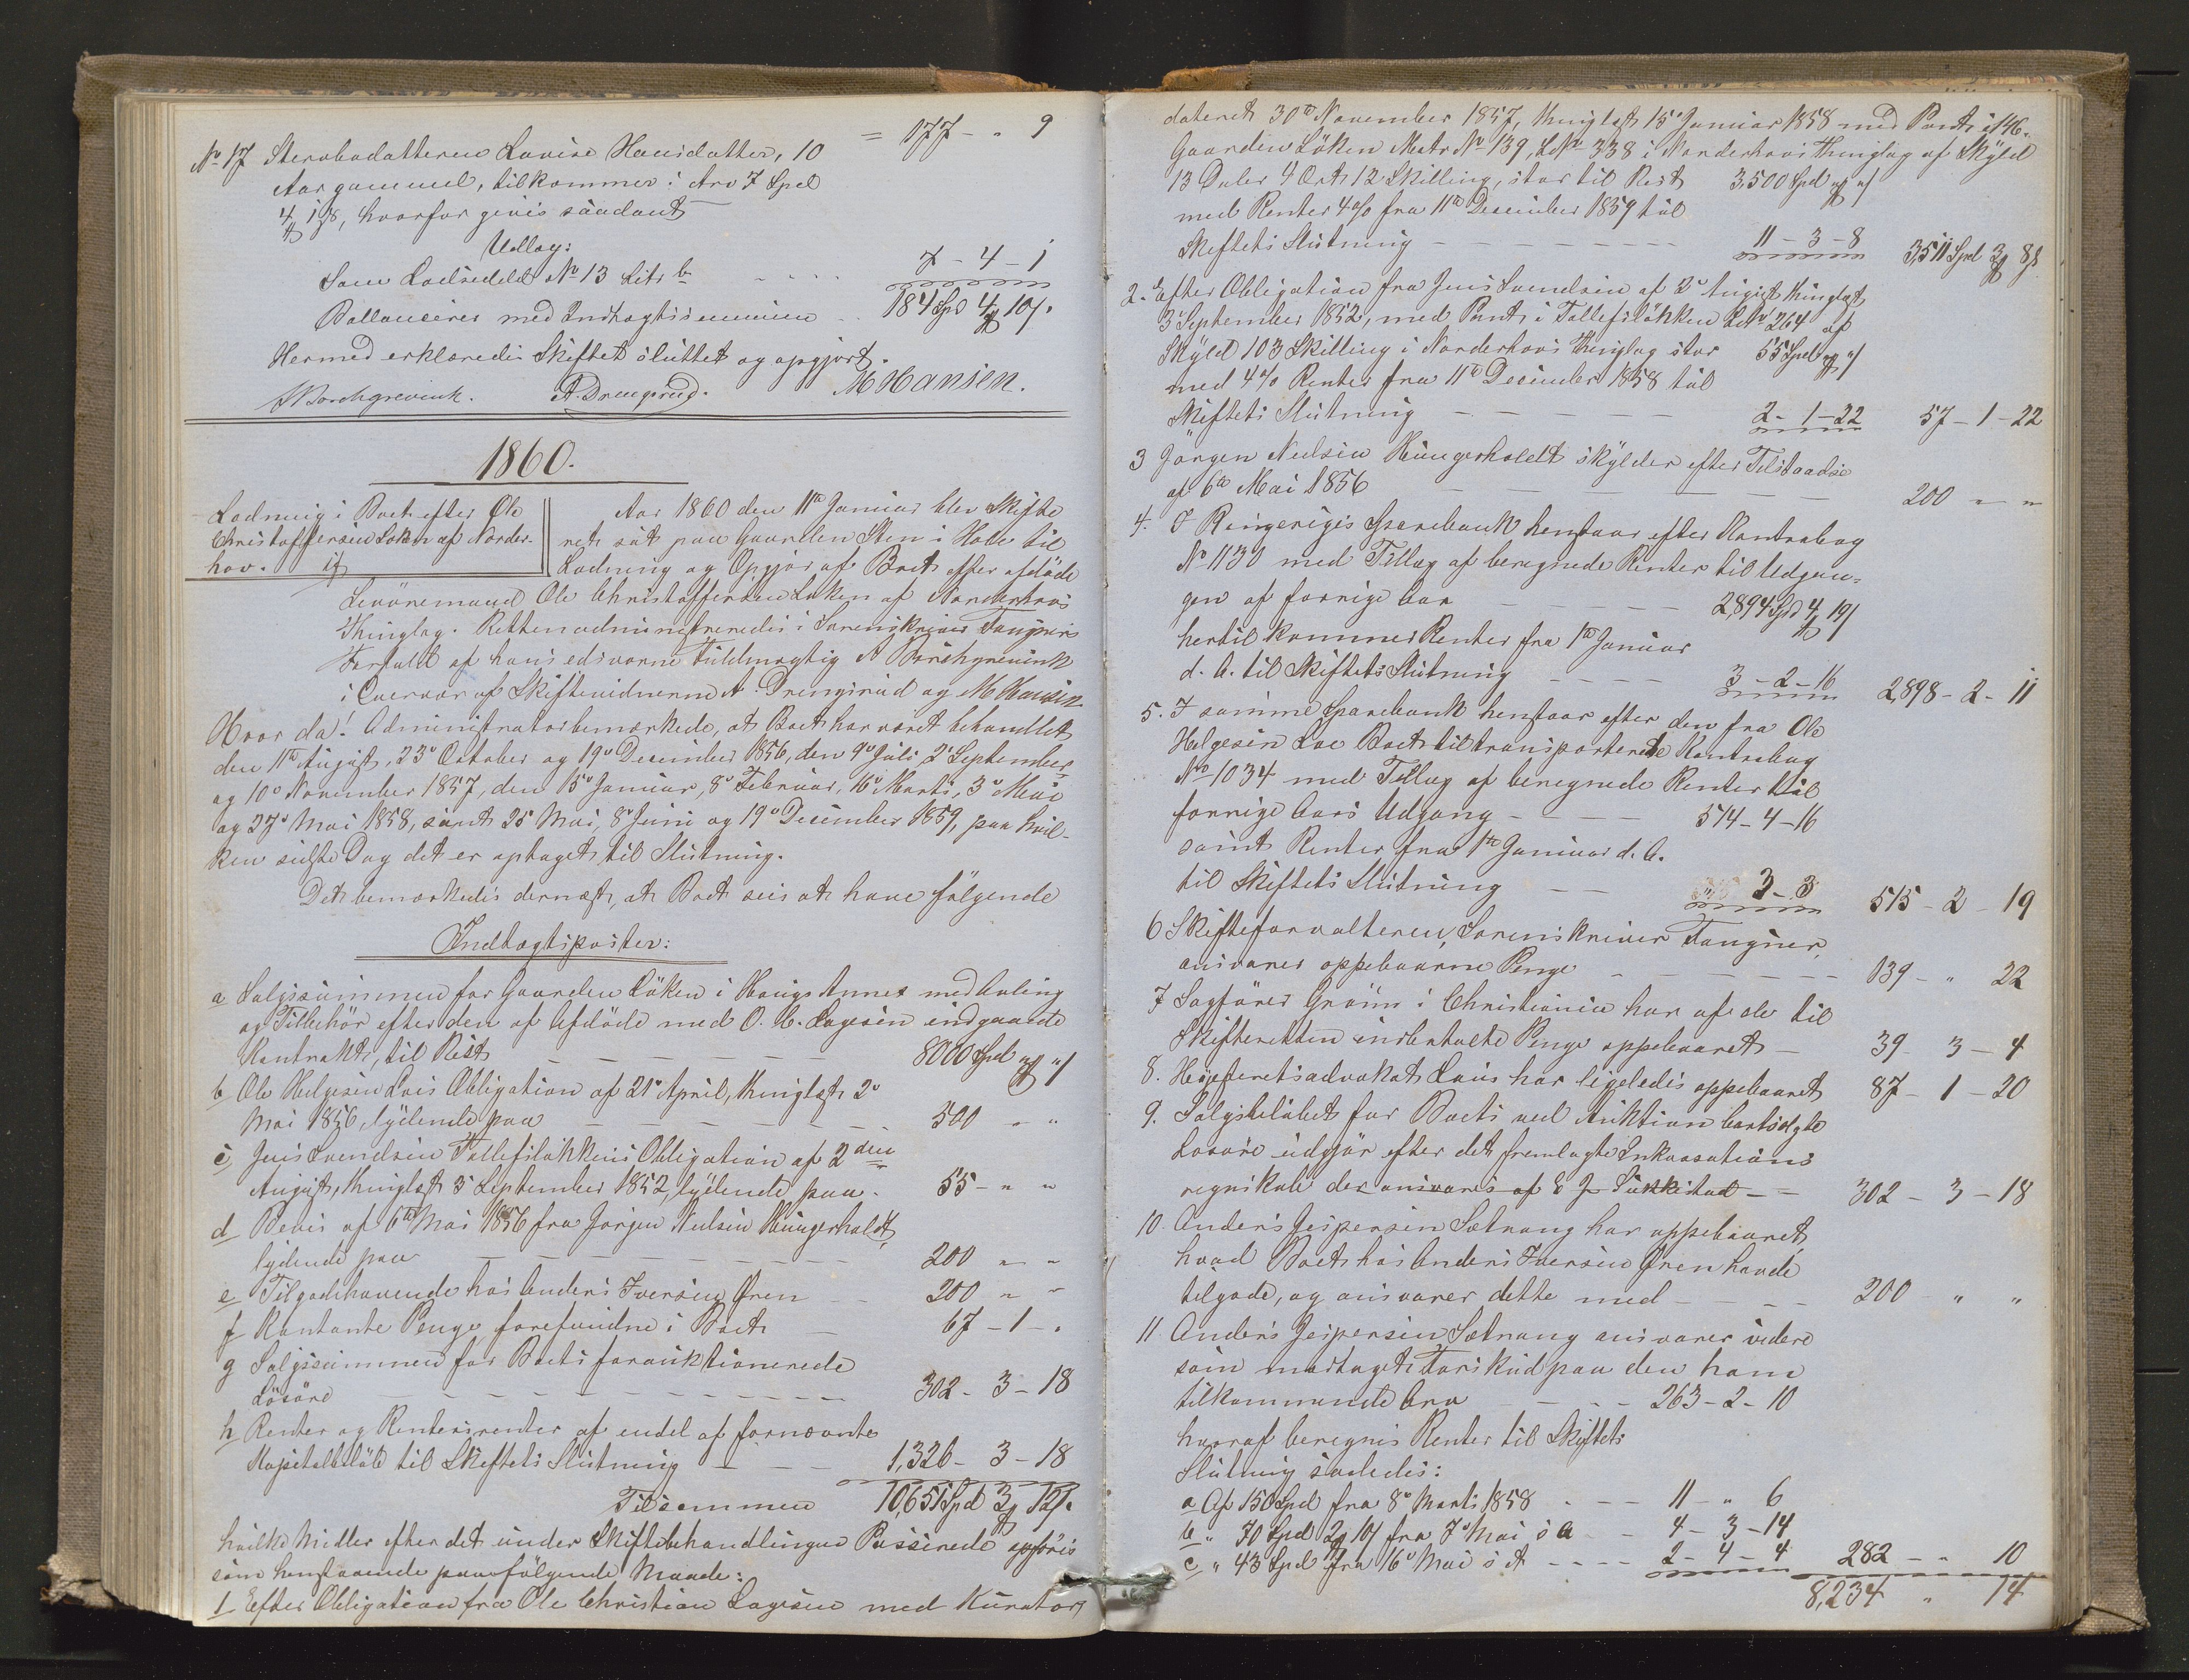 = 177 - " 9
No 17 Stervbodatteren Lovise Hansdatter, 10
Aar gammel, tilkommer i Arv 7 Spd
4 ƒ 1 ß, hvorfor gives saadant
Udlæg:
Som Lodseddel No 13 Litr b - - - - 7 - 4 - 1
Ballancerer med Indtægtssummen - 184 Spd 4 ƒ 10 ß.
Hermed erklæredes Skiftet sluttet og opgjort.
Borchgrevink. A. Drengsrud. M Hansen.
1860.
Lodning i Boet efter Ole
Christoffersen Løken af Norder-
hov.
Aar 1860 den 11te Januar blev Skifte
ret sat paa Gaarden Steen i Hole til
Lodning og Opgjør af Boet efter afdøde
Selveiermand Ole Christoffersen Løken af Norderhovs
Thinglag. Retten administreredes i Sorenskriver Fougners
Forfald af hans edsvorne Fuldmægtig A Borchgrevink
i Overvær af Skiftevidnerne A. Drengsrud og M Hansen
Hvor da! Administrator bemærkede, at Boet har været behandlet
den 11te August, 23de October og 19de December 1856, den 9de Juli, 2de September
og 10de November 1857, den 15de Januar, 8de Februar, 16de Marts, 3de Mai
og 27de Mai 1858, samt 25de Mai, 8de Juni og 19de December 1859, paa hvil-
ken sidste Dag det er optaget til Slutning.
Det bemærkedes dernæst, at Boet sees at have følgende
Indtægtsposter:
a Salgssummen for Gaarden Løken i Houg Annex med Avling
og Tilbehør efter den af Afdøde med O. C. Lagesen indgaaede
Kontrakt, til Rest - - - - - 8000 Spd " ƒ " ß
b Ole Helgesen Loes Obligation af 21de April, thinglæst 2de
Mai 1856, lydende paa - - - - - 500 " "
c Jens Svendsen Tollefsløkkens Obligation af 2den
August, thinglæst 3de September 1852, lydende paa - 55 - " "
d Bevis af 6te Mai 1856 fra Jørgen Nielsen Hungerholdt,
lydende paa - - - - - 200 " "
e Tilgodehavende hos Anders Iversen Gren - - 200 " "
f Kontante Penge, forefundne i Boet - 67 - 1 - "
g Salgssummen for Boets forauktionerede
Løsøre - - - - - 302 - 3 - 18
h Renter og Rentesrenter af endel af fornævnte
Kapitalbeløb til Skiftets Slutning - - - 1,326 - 3 - 18
Tilsammen 10,651 Spd 3 ƒ 12 ß.
hvilke Midler efter det under Skiftebehandlingen Passerede opføres
som henstaaende paa følgende Maade:
1 Efter Obligation fra Ole Christian Lagesen med Kurator,
dateret 30te November 1857, thinglæst 15de Januar 1858 med Pant i
Gaarden Løken Matr No 139, L No 338 i Norderhovs Thinglag af Skyld
13 Daler 4 Ort 12 Skilling, staar til Rest 3,500 Spd " ƒ " ß
med Renter 4 % fra 11te December 1859 til
Skiftets Slutning - - - - - 11 - 3 - 8 3,511 Spd 3 ƒ 8 ß
2. Efter Obligation fra Jens Svendsen af 2de August thinglæst
3de September 1852, med Pant i Tollefsløkken L No 264 af
Skyld 103 Skilling i Norderhovs Thinglag staar 55 Spd " ƒ " ß
med 4 % Renter fra 11te December 1858 til
Skiftets Slutning - - - - - 2 - 1 - 22 57 - 1 - 22
3 Jørgen Nielsen Hungerholdt skylder efter Tilstaaelse
af 6te Mai 1856 - - - - - 200 " "
4. I Ringeriges Sparebank henstaar efter Kontrabog
No 1130 med Tillæg af beregnede Renter til Udgan-
gen af forrige Aar - - - - - 2,894 Spd 4 ƒ 19 ß
hertil kommer Renter fra 1te Januar
d. A. til Skiftets Slutning - - - - 3 - 2 - 16 2,898 - 2 - 11
5. I samme Sparebank henstaar efter den fra Ole
Helgesen Loe Boet tiltransporterede Kontrabog
No 1034 med Tillæg af beregnede Renter til
forrige Aars Udgang - - - - 514 - 4 - 16
samt Renter fra 1te Januar d. A.
til Skiftets Slutning - - " 3 - 3 515 - 2 - 19
6 Skifteforvalteren, Sorenskriver Fougner,
ansvarer oppebaarne Penge - - - - - 139 - " 22
7 Sagfører Grønn i Christiania har af de til
Skifteretten indbetalte Penge oppebaaret - 39 - 3 - 4
8. Høiesteretsadvokat Lous har ligeledes oppebaaret 87 - 1 - 20
9. Salgsbeløbet for Boets ved Auktion bortsolgte
Løsøre udgjør efter det fremlagte Inkassations
regnskab der ansvares af E J Sukkestad - - 302 - 3 - 18
10. Anders Jespersen Sætrang har oppebaaret,
hvad Boet hos Anders Iversen Gren havde
tilgode, og ansvarer dette med - - - - 200 " "
11 Anders Jespersen Sætrang ansvarer videre
som modtaget Forskud paa den ham
tilkommende Arv - - - 263 - 2 - 10
hvoraf beregnes Renter til Skiftets
Slutning saaledes:
a Af 150 Spd fra 8de Marts 1858 - - - 11 - " 6
b " 70 Spd 2 ƒ 10 ß fra 7de Mai s A - - 4 - 3 - 14
c " 43 Spd fra 16de Mai s A - - - - 2 - 4 - 4 282 - " 10
8,234 " 14